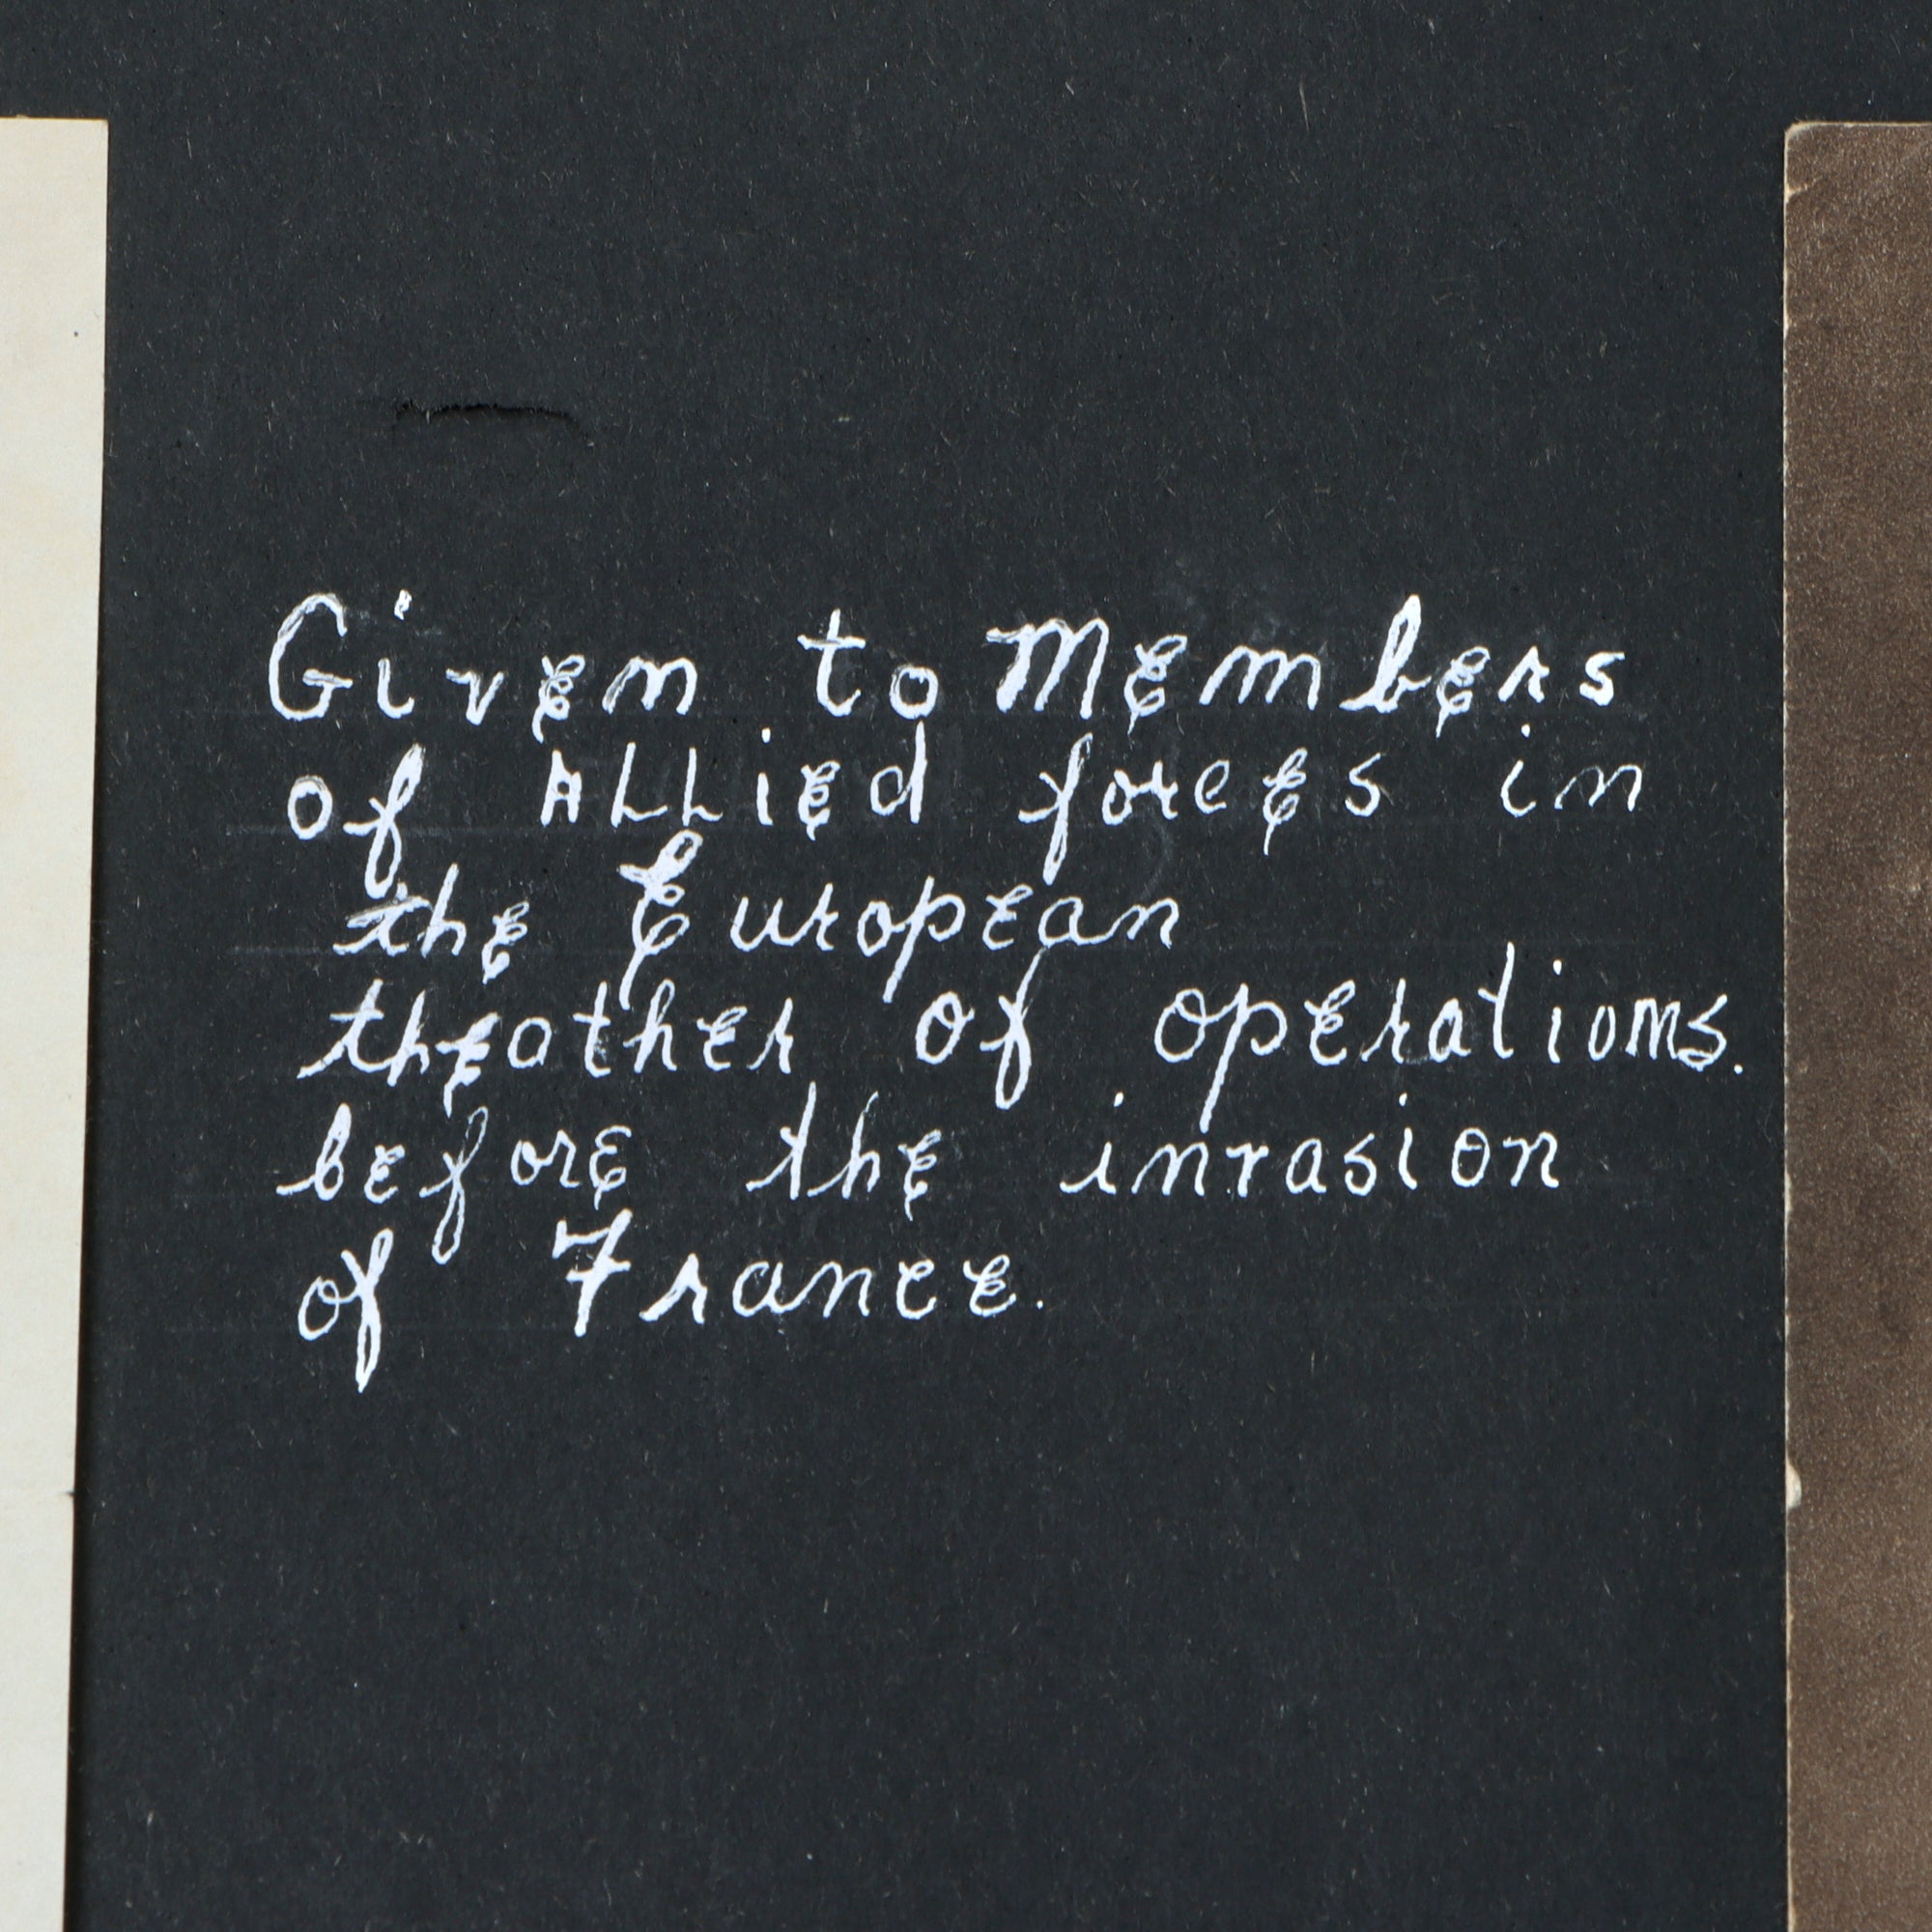 Given to Members
of ALLied forces in
the European
theather of operations.
before the invasion
of France.